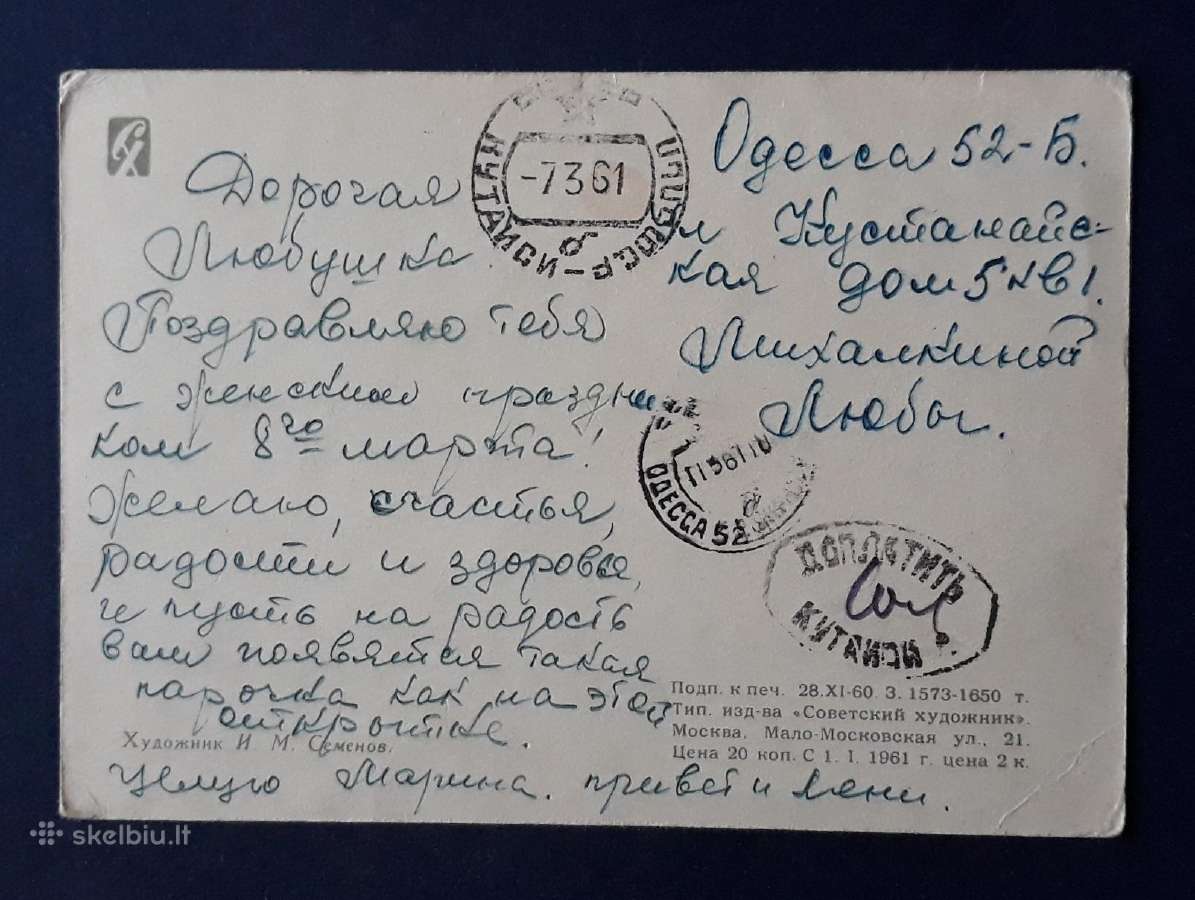 Дорогая
Любушка.
Поздравляю тебя
с женским праздни
ком 8го марта!
Желаю, счастья,
радости и здоровья,
и пусть на радость
вам появятся такая
парочка как на этой
открытке.
Целую Марина. привет и Лени.
Одесса 52-Б.
Кустанайс-
кая дом 5 кв 1.
Михалкиной
Любы.
КУТАИСИ
-7 3 61
б
ОДЕССА 52
ДОПЛАТИТЬ
КУТАИСИ
Художник И. М. Семенов.
Подп. к печ. 28.XI-60 З. 1573-1650 т.
Тип. изд-ва «Советский художник».
Москва, Мало-Московская ул., 21.
Цена 20 коп. С 1. I. 1961 г. цена 2 к.
skelbiu.lt